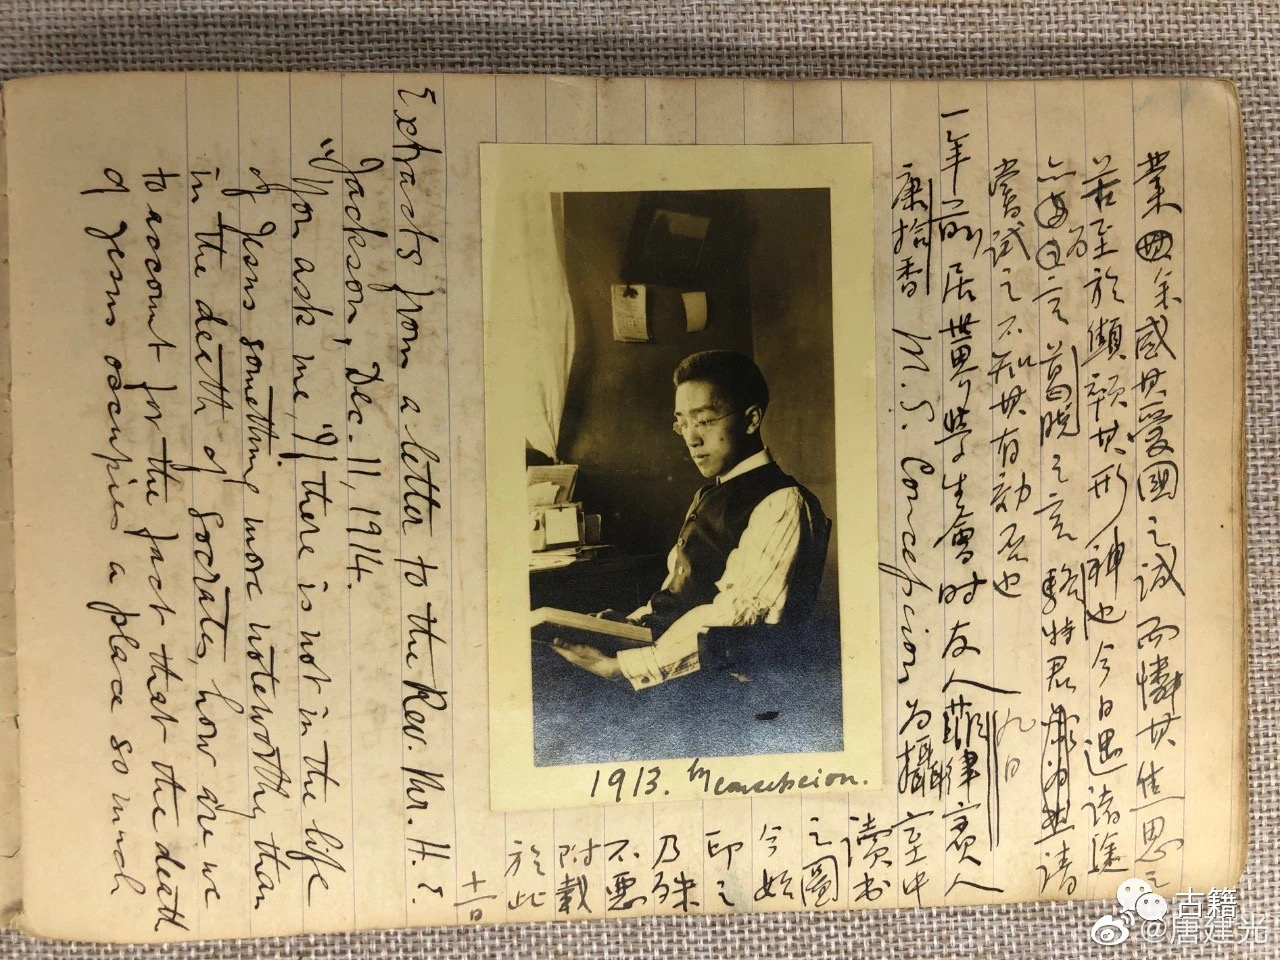 業余感其愛國之誠而憐其焦思之
苦至於顑頷其形神也今日遇諸途
為言葛之言特君請
嘗試之不知其有効否也 九日
一年前居世界學生會時友人菲律賓人
康拾香 M. S. Concepcion 為攝室中
讀書
之圖
今始
印之
乃殊
不惡
附載
於此
十一日
1913. by Concepcion.
Extracts from a letter to the Rev. Mr. H. F.
Jackson, Dec. 11, 1914.
"You ask me, 'If there is not in the life
of Jesus something more noteworthy than
in the death of Socrates, how are we
to account for the fact that the death
of Jesus occupies a place so much
古籍
@唐建光